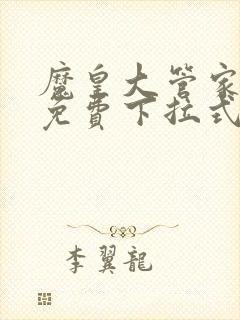 魔皇大管家
免費下拉式
李翼龍